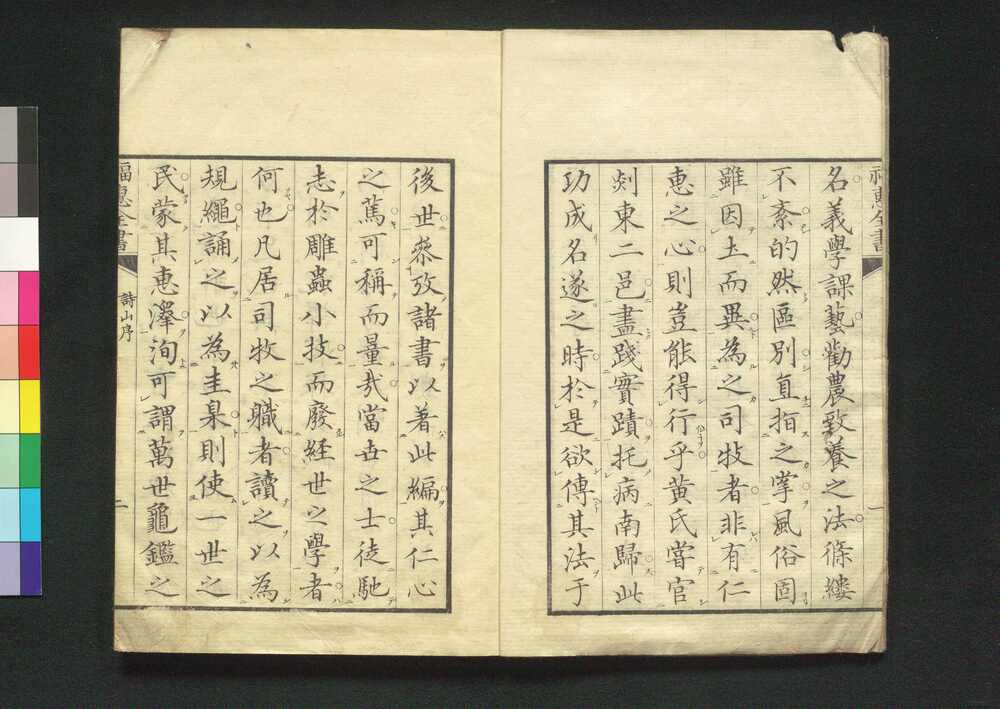 名義學課藝勸農致養之法條縷
不紊的然區別直指之掌風俗固
雖因土而異為之司牧者非有仁
惠之心則豈能得行乎黄氏嘗官
剡東二邑盡踐實蹟托病南歸此
功成名遂之時於是欲傳其法于
後世叅攷諸書以著此編其仁心
之篤可稱而量哉當世之士徒馳
志於雕蟲小技而廢経世之學者
何也凡居司牧之職者讀之以為
規繩誦之以為圭臬則使一世之
民蒙其惠澤洵可謂萬世龜鑑之
福惠全書 詩山序 二